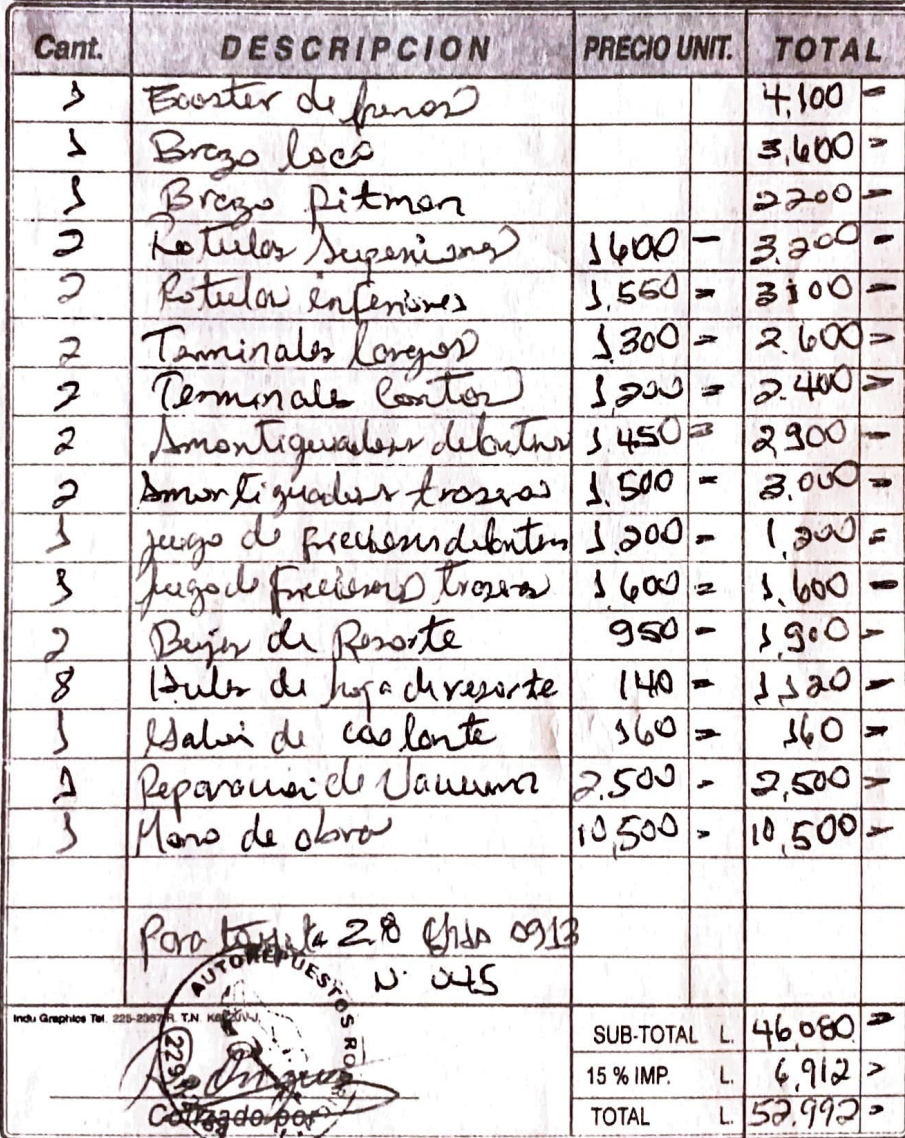 Cant. DESCRIPCION PRECIO UNIT. TOTAL
1 Booster de frenos 4,100 =
1 Brazo loco 3,600 =
1 Brazo Pitman 2200 =
2 Rotulas Superiores 1600 - 3.200 =
2 Rotulas inferiores 1,550 = 3100 =
2 Terminales largos 1300 = 2,600 =
2 Terminales Cortos 1,200 = 2.400 =
2 Amortiguadores delanteros 1,450 = 2900 -
2 Amortiguadores traseros 1,500 = 3.000 =
1 juego de fricciones delanteras 1,200 - 1,200 =
1 juego de fricciones traseras 1,600 = 1,600 -
2 Bujes de Resorte 950 - 1,900 -
8 Hules de hoja de resorte 140 = 1120 =
1 de 160 = 160 =
1 Reparacion de Vacuum 2.500 - 2,500 =
1 Mano de obra 10,500 - 10,500 -
Para 2.8 0913
N. 045
AUTOREPUESTOS
Indu Graphics Tel. R.T.N.
Cotizado por
SUB-TOTAL L. 46,080 =
15 % IMP. L. 6,912 =
TOTAL L. 52,992 =